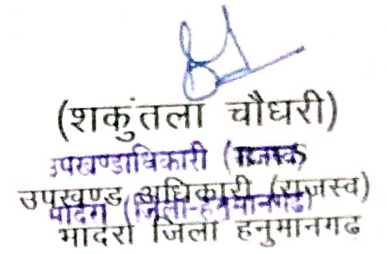 (शकुंतला चौधरी)
उपखण्डाधिकारी (राजस्व
उपखण्ड अधिकारी (राजस्व)
(जिला-हनुमानगढ)
भादरा जिला हनुमानगढ